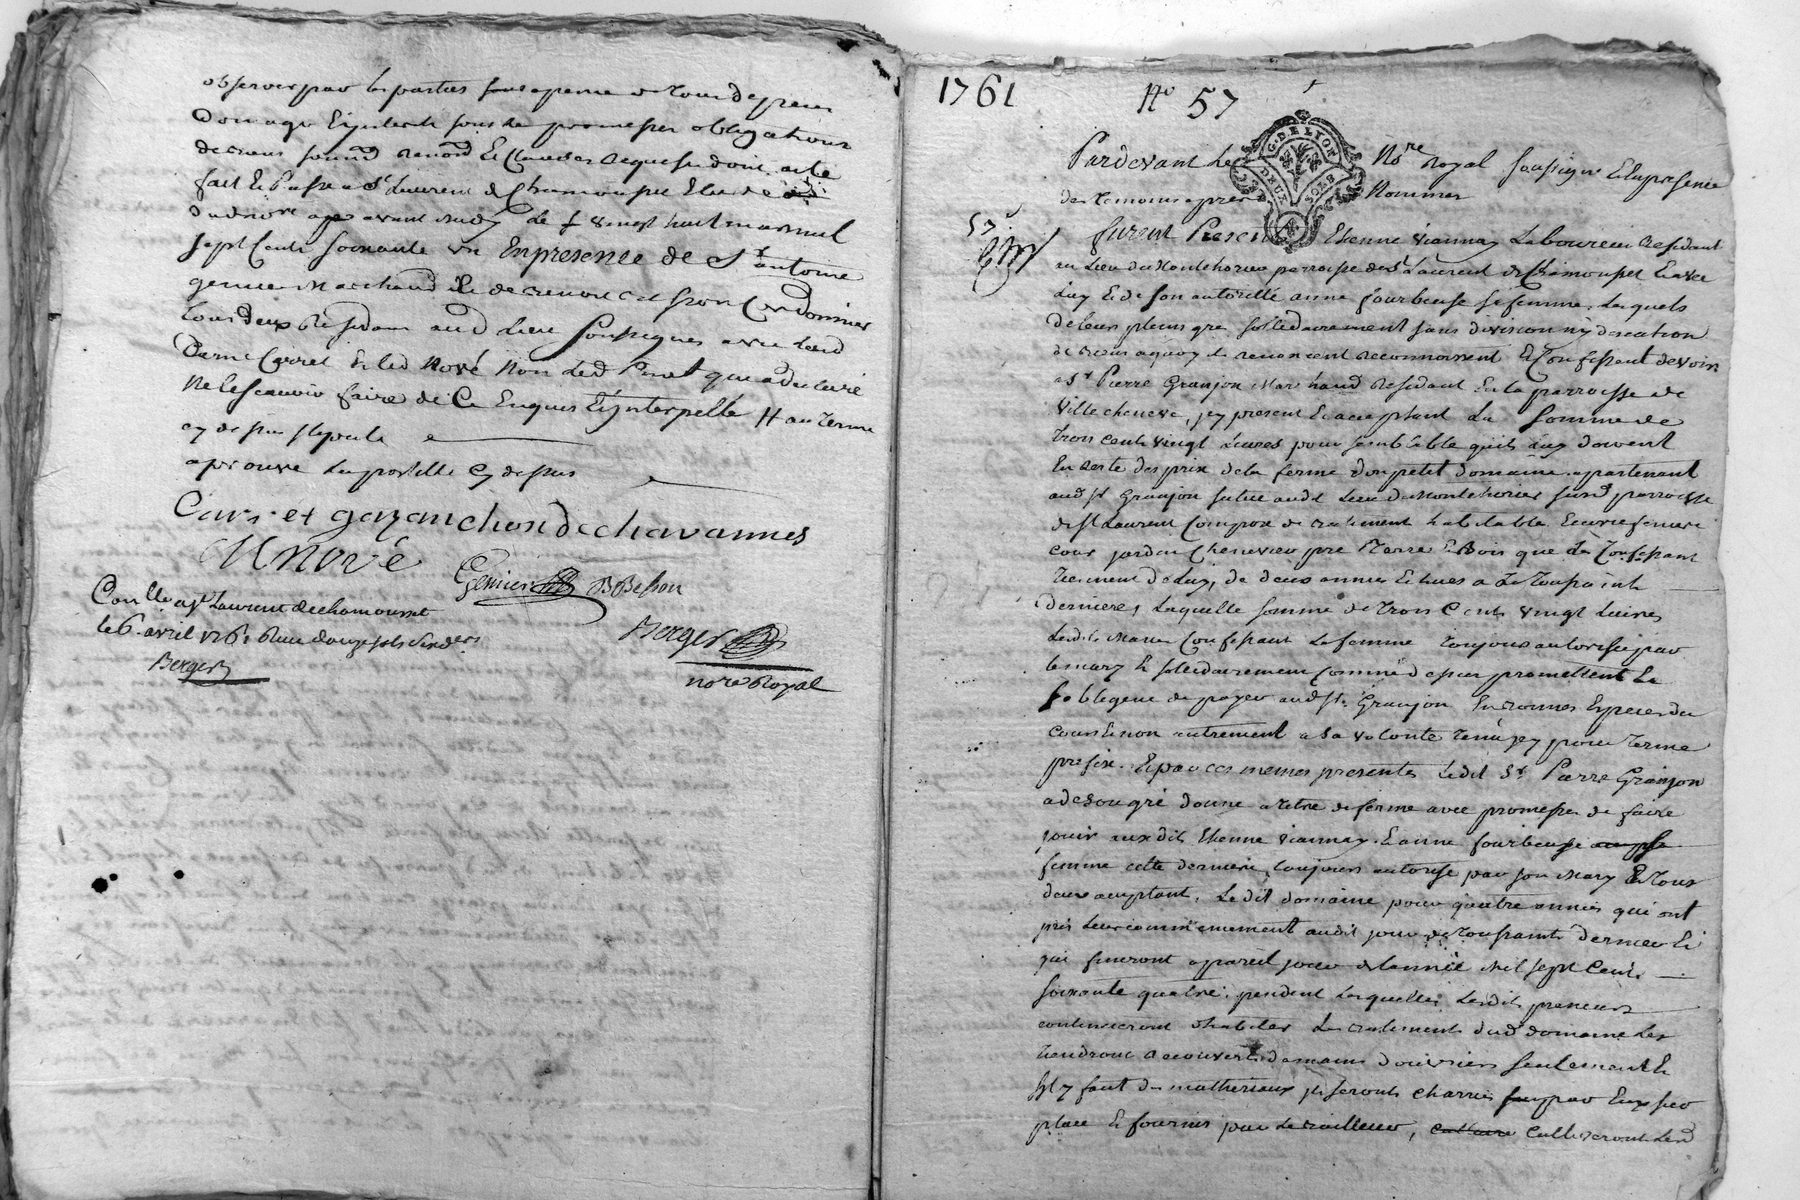 observer par les parties sous peine de tous depens
Domage Et jnterets sous les promesses obligations
de biens soumd renond Et Clauses Requises dont acte
fait Et Passé a St Laurent de Chamousset Etude
dudnore apres avant midy Le vingt huit mars mil
sept Cents soixante un En presence de Sr antoine
genier Marchand et Besson Cordonnier
tous deux Residans aud Lieu Soussignes avec Led
Dame Carret Et led Nové Non Led qui a declaré
Ne le scavoir faire de Ce Enquis Et jnterpellé # au terme
cy dessus stipulé
aprouvé La postille cy dessus
gazanchon de chavannes
Nové
Genier BBesson
Conllé a St Laurent de chamousset
le 6. avril 1761 Reçu douze sols six ders
Berger
Berger
nore Royal
1761 No 57
G. DE LION
DEUX SOLS
Pardevant Le Nore Royal soussigné Et En presence
des temoins apres Nommes
57e
furent Presens Etienne viannay Laboureur Residant
au Lieu du Montchorier parroisse de St Laurent de Chamousset Et avec
Luy Et de son autorité anne fourbeuse sa femme, Lesquels
de leur plein gré sollidairement sans division ny discution
de biens a quoy ils renoncent reconnoissent Et Confessent devoir
a Sr Pierre Granjon Marchand Residant En la parroisse de
ville cheneve, jcy present Et acceptant La Somme de
trois cents vingt Livres pour semblable qu'ils Luy doivent
En reste des prix de la ferme d'un petit domaine apartenant
aud Sr Granjon situé audt Lieu du Montchorier susd parroisse
de St Laurent Composé de batiment habitable Ecurie feniere
cour jardin Chenevier pré Terre Et Bois que Les Confessant
tiennent de Luy, de deux années Echues a La Toussaint
derniere, Laquelle somme de trois Cents vingt Livres
Lesdits Maries Confessant La femme toujours autorisée par
le mary Et sollidairement Comme dessus promettent Et
s'obligent de payer aud Sr. Granjon En bonnes Especes du
cours Et non autrement a sa volonté tenu jcy pour terme
prefix. Et par ces memes presentes Ledit Sr Pierre Granjon
a de son gré donné a titre de ferme avec promesse de faire
jouir auxdits Etienne viannay Et anne fourbeuse
femme cette derniere toujours autorisé par son Mary Et tous
deux acceptant, Ledit domaine pour quatre années qui ont
pris Leur commencement audit jour de toussaints dernier Et
qui finiront a pareil jour de lannée Mil sept Cents
soixante quatre, pendent Lesquelles Lesdits preneurs
continueront d'habiter Les batiments dud domaine Les
tiendront a couvert de mains d'ouvriers seulement Et
s'il y faut des matheriaux jls seronts charries par Eux sur
place Et fournis par Le bailleur, culture Cultiveront Lesd